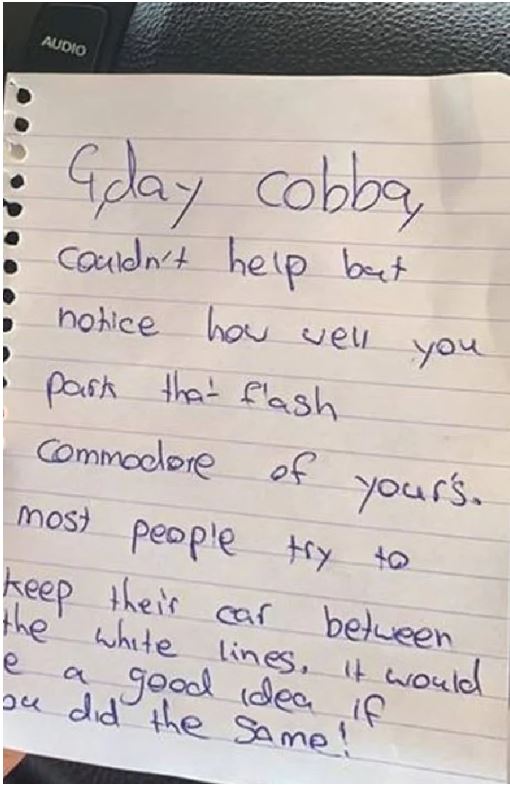 AUDIO
G,day cobba,
couldn't help but
notice how well you
park that flash
commodore of your's.
most people try to
keep their car between
the white lines. it would
e a good idea if
ou did the same!